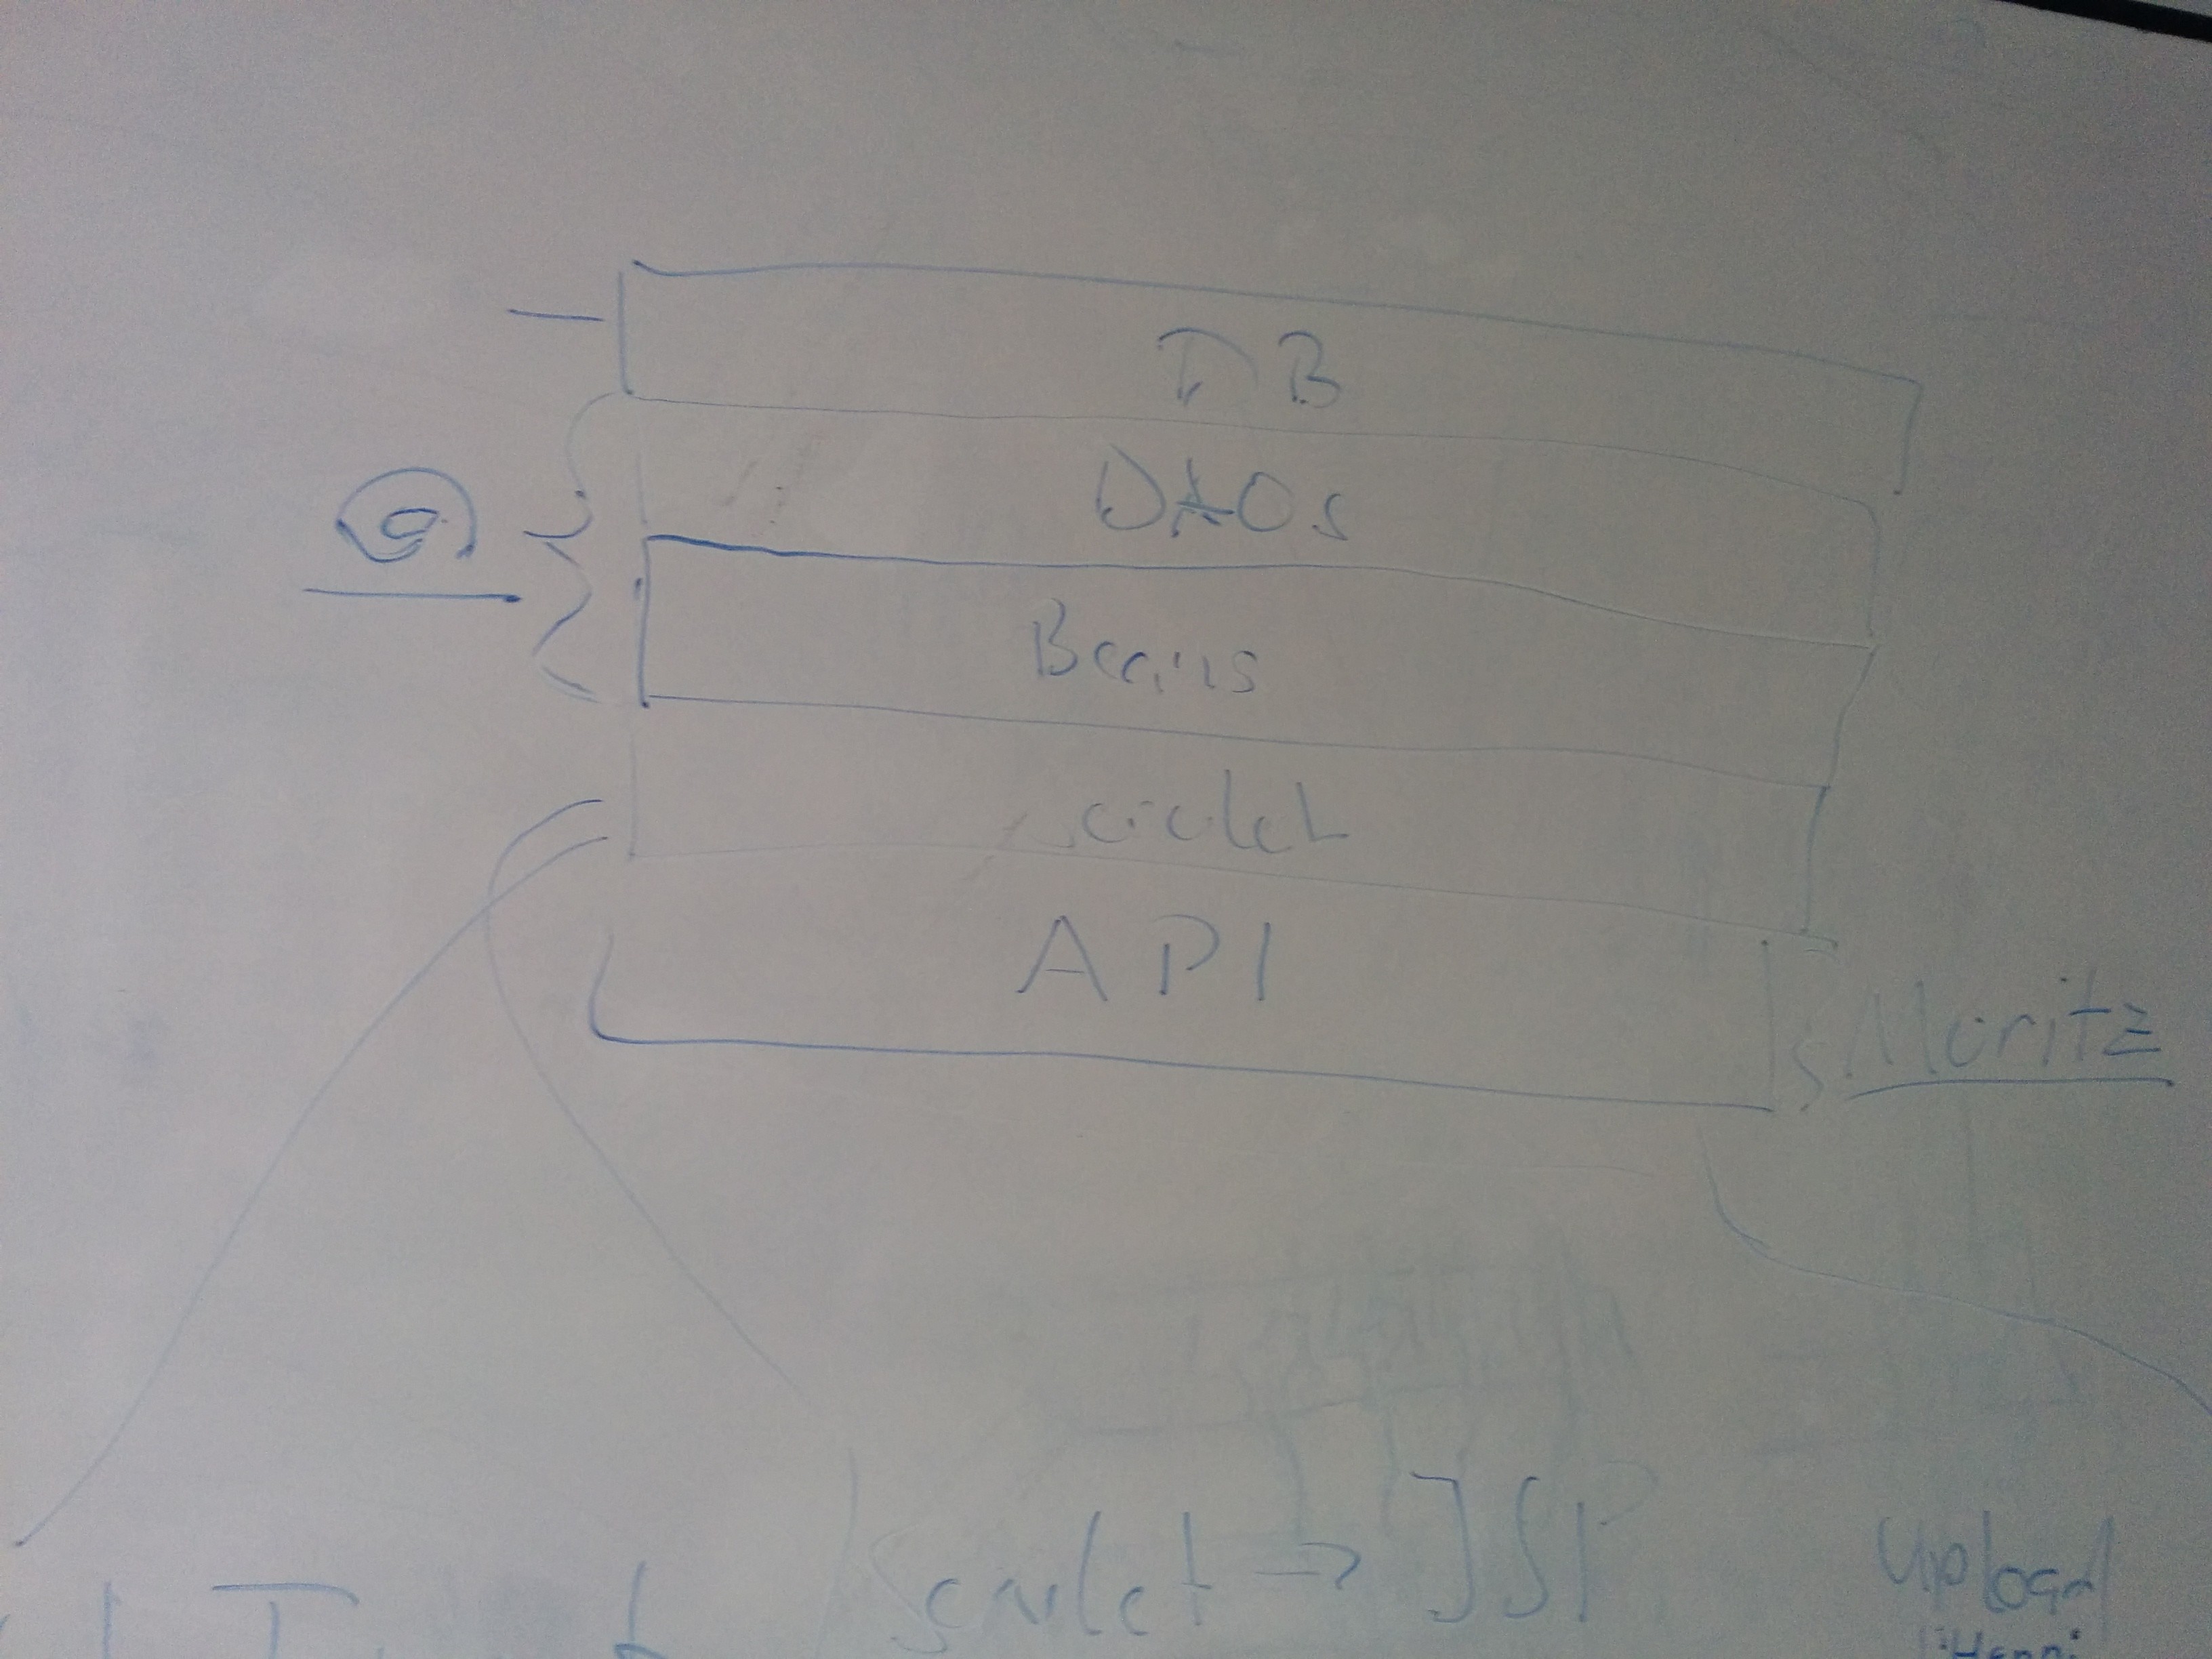 DB
DAOs
Beans
Servlet
API
Moritz
Servlet → JSP
upload